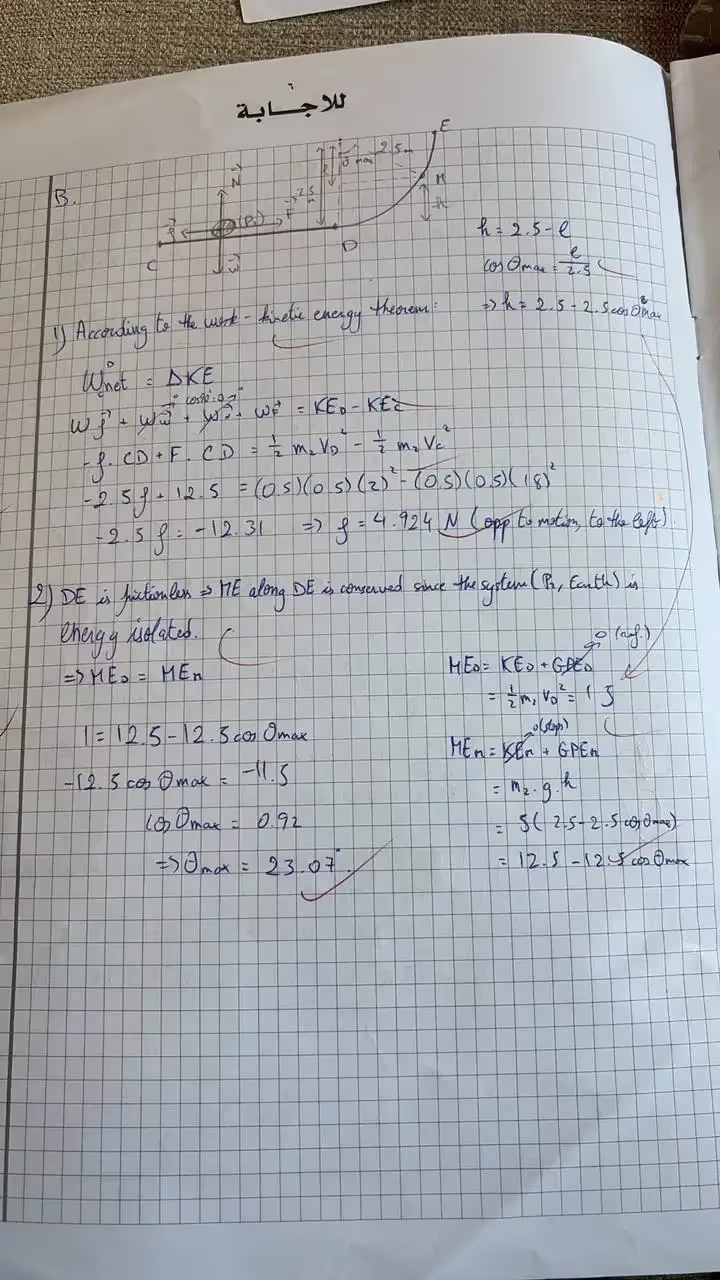 للاجابة
B.
E
2.5m
N
(P₂)
2.5
F
M
h
f
C
W
D
h = 2.5 - l
cos θmax = l/2.5
⇒ h = 2.5 - 2.5 cos θmax
1) According to the work - kinetic energy theorem:
Wnet = ΔKE
Wf + Ww + WN + WF = KED - KEC
-f. CD + F. CD = ½ m₂ VD² - ½ m₂ VC²
-2.5f + 12.5 = (0.5)(0.5)(2)² - (0.5)(0.5)(1.8)²
-2.5f = -12.31 ⇒ f = 4.924 N (opp to motion, to the left)
2) DE is frictionless ⇒ ME along DE is conserved since the system (P₂, Earth) is
energy isolated.
⇒ MED = MEM
1 = 12.5 - 12.5 cos θmax
-12.5 cos θmax = -11.5
cos θmax = 0.92
⇒ θmax = 23.07°.
0 (ref.)
MED = KED + GPED
= ½ m₂ VD² = 1 J
0 (stops)
MEM = KEM + GPEM
= m₂. g. h
= 5( 2.5 - 2.5 cos θmax)
= 12.5 - 12.5 cos θmax